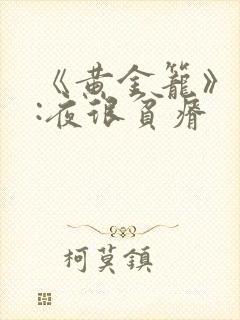 《黄金籠》
:夜很貧瘠
柯莫鎮